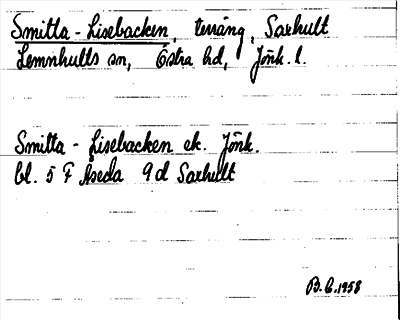 Smitta-Lisebacken, terräng, Saxhult
Lemnhults sn, Östra hd, Jönk. l.
Smitta-Lisebacken ek. Jönk.
bl. 5 F Åseda 9 d Saxhult
B.C. 1958